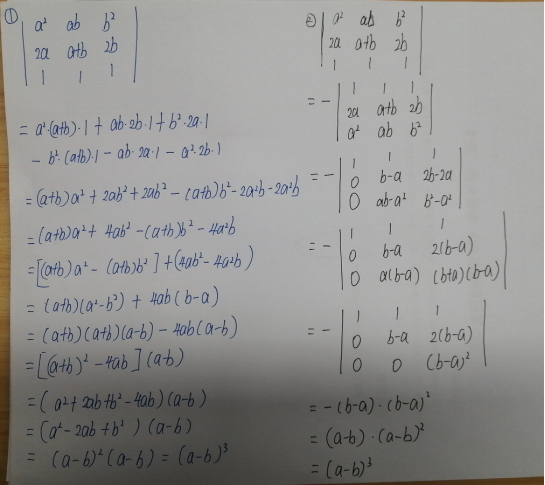 ① | a² ab b² |
| 2a a+b 2b |
| 1 1 1 |
= a²·(a+b)·1 + ab·2b·1 + b²·2a·1
- b²·(a+b)·1 - ab·2a·1 - a²·2b·1
= (a+b)a² + 2ab² + 2ab² - (a+b)b² - 2a²b - 2a²b
= (a+b)a² + 4ab² - (a+b)b² - 4a²b
= [(a+b)a² - (a+b)b²] + (4ab² - 4a²b)
= (a+b)(a²-b²) + 4ab(b-a)
= (a+b)(a+b)(a-b) - 4ab(a-b)
= [(a+b)² - 4ab](a-b)
= (a²+2ab+b²-4ab)(a-b)
= (a²-2ab+b²)(a-b)
= (a-b)²(a-b) = (a-b)³
② | a² ab b² |
| 2a a+b 2b |
| 1 1 1 |
= - | 1 1 1 |
| 2a a+b 2b |
| a² ab b² |
= - | 1 1 1 |
| 0 b-a 2b-2a |
| 0 ab-a² b²-a² |
= - | 1 1 1 |
| 0 b-a 2(b-a) |
| 0 a(b-a) (b+a)(b-a) |
= - | 1 1 1 |
| 0 b-a 2(b-a) |
| 0 0 (b-a)² |
= -(b-a)·(b-a)²
= (a-b)·(a-b)²
= (a-b)³